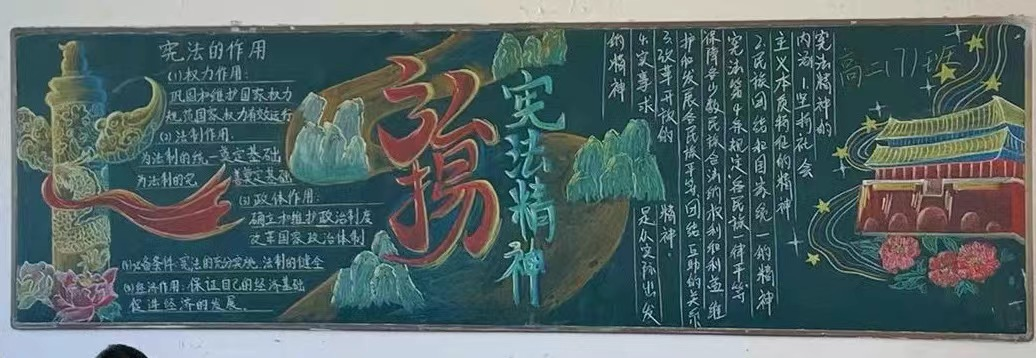 宪法的作用
(1)权力作用:
巩固和维护国家权力
规范国家权力有效运行
(2)法制作用:
为法制的统一奠定基础
为法制的完善奠定基础
(3)政体作用:
确立和维护政治制度
改革国家政治体制
(4)必备条件:宪法的充分实施,法制的健全
(5)经济作用:保证自己的经济基础
促进经济的发展。
弘扬
宪法精神
高二(7)班
宪法精神的
内涵 1.坚持社会
主义本质特征的精神
2.民族团结和国家统一的精神
宪法第4条规定各民族一律平等
保障各少数民族合法的权利和利益维
护和发展各民族平等团结互助的关系
3.改革开放的精神.
4.实事求是从实际出发
的精神